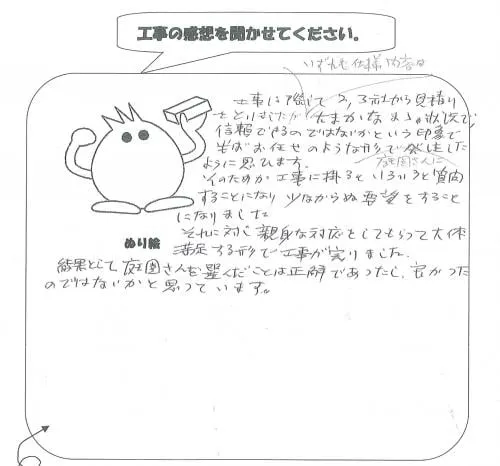 工事の感想を聞かせてください。
いずれも仕様内容が
工事に際して2,3社から見積り
をとりましたが大まかなままの状況で
信頼できるのではないかという印象で
半ばお任せのような形で発注した
ように思います。
庭園さんに
そのためか工事に掛るといろいろと質問
することになり少なからぬ要望をすること
になりました
それに対し親身な対応をしてもらって大体
満足する形で工事が完りました.
ぬり絵
結果として庭園さんを選んだことは正解であったし、良かった
のではないかと思っています。